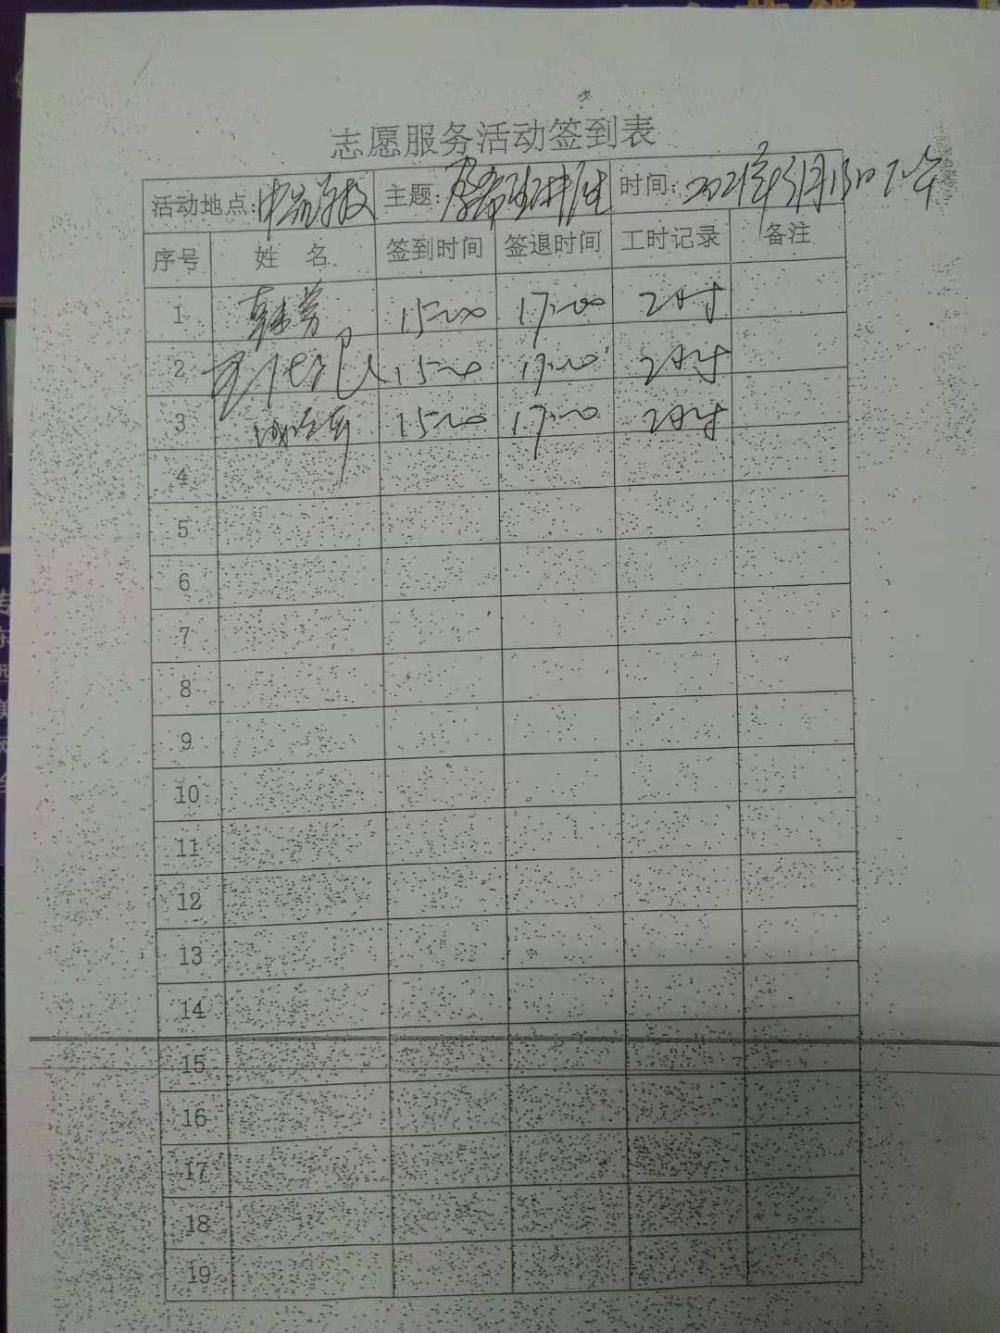 志愿服务活动签到表
活动地点: 主题: 时间: 2021年3月13日下午
序号 姓 名 签到时间 签退时间 工时记录 备注
1 15:00 17:00 2小时
2 15:00 17:00 2小时
3 15:00 17:00 2小时
4
5
6
7
8
9
10
11
12
13
14
15
16
17
18
19